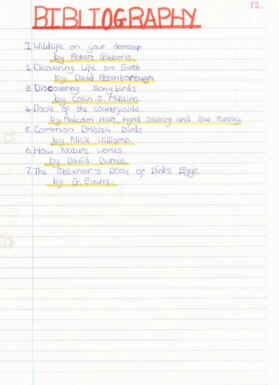 12.
BIBLIOGRAPHY
1. Wildlife on your doorstep
by
2. Discovering Life on Earth
by David Attenborough.
3. Discovering Songbirds
by Colin S.
4. Book of the Countryside
by Malcolm Hart, and
5. Common British Birds
by Nick Williams.
6. How Nature works
by David Burnie.
7. The Observer's Book of Birds Eggs
by G. Evans.